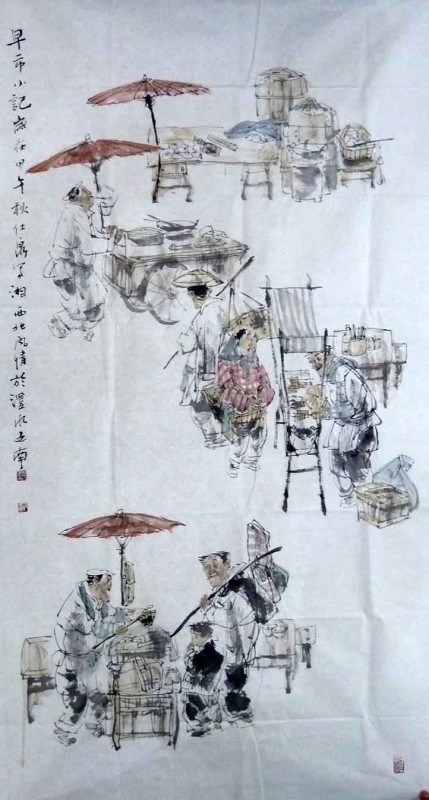 早市小记歲在甲午秋仕濤写湘西北风情於澧水之南